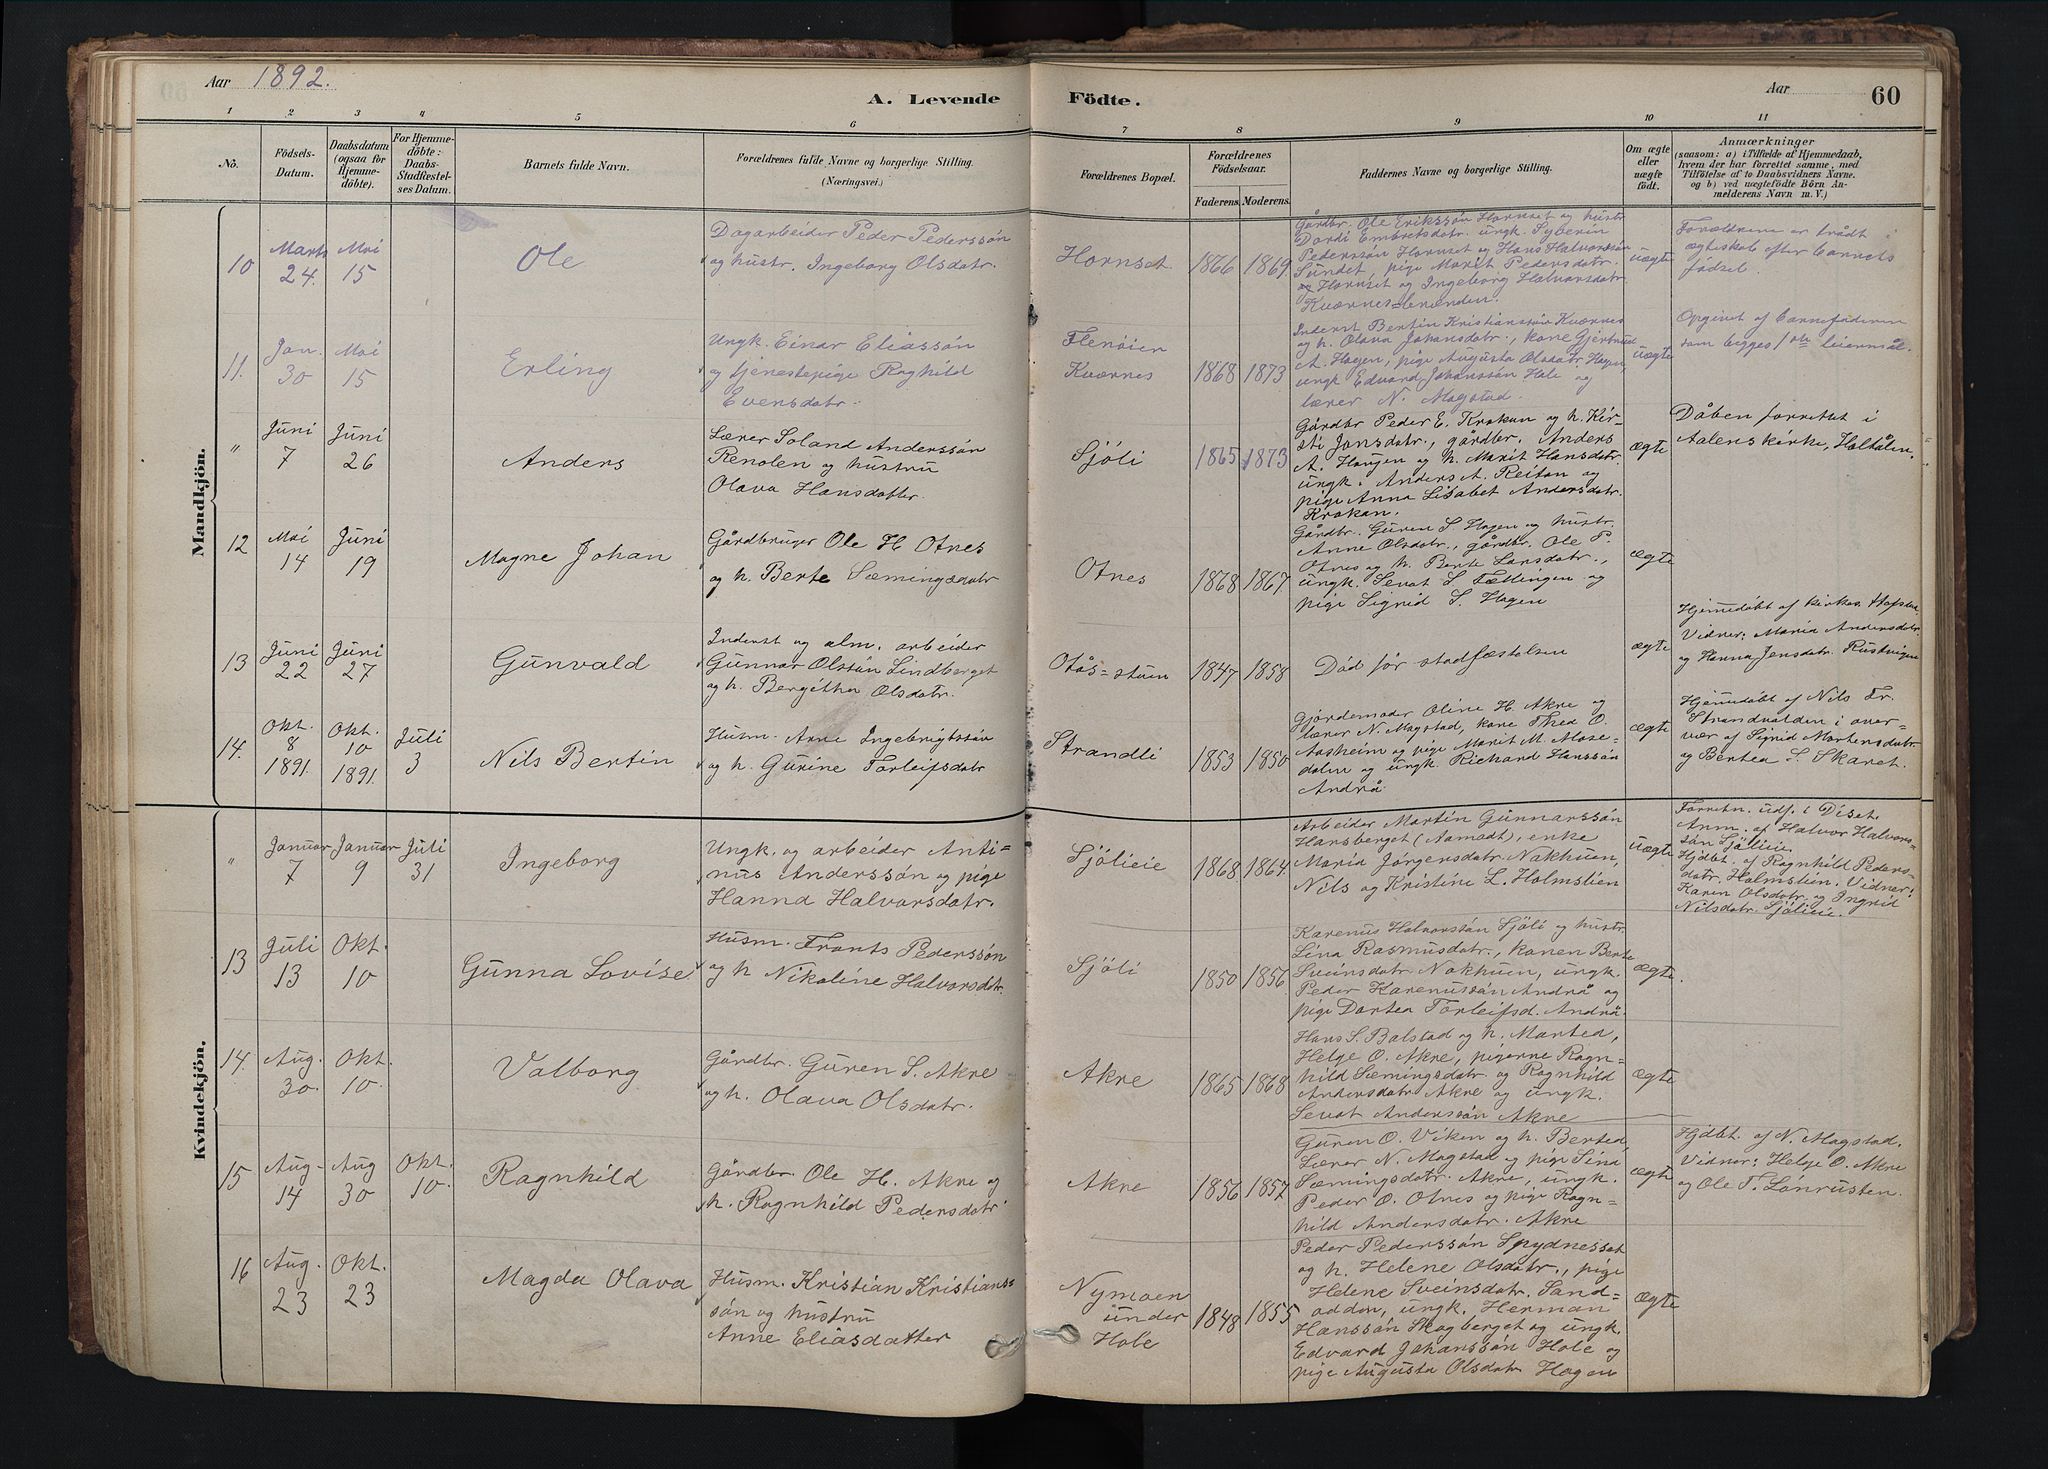 Aar 1892.
A. Levende Födte.
Aar
60
1 2 3 4 5 6 7 8 9 10 11
No.
Födsels-Datum.
Daabsdatum (ogsaa for Hjemme-döbte).
For Hjemme-döbte: Daabs-Stadfæstel-ses Datum.
Barnets fulde Navn.
Forældrenes fulde Navne og borgerlige Stilling. (Næringsvei.)
Forældrenes Bopæl.
Forældrenes Födselsaar.
Faderens. Moderens.
Faddernes Navne og borgerlige Stilling.
Om ægte eller uægte födt.
Anmærkninger
(saasom: a) i Tilfælde af Hjemmedaab,
hvem der har forrettet samme, med
Tilföielse af to Daabsvidners Navne.
og b) ved uægtefödte Börn An-
melderens Navn m. V.)
Mandkjön.
10
Marts 24.
Mai 15
Ole
Dagarbeider Peder Pederssön
og hustr. Ingeborg Olsdatr.
Hornset
1866 1869
Gårdbr. Ole Erikssön Hornset og hustr.
Dordi Embretsdatr. ungk. Syverin
Pederssön Hornset og Hans Halvorssön
Sundet, pige Marit Pedersdatr.
Hornset og Ingeborg Halvorsdatr.
uægte
Forældrene er trådt i
ægteskab efter barnets
födsel.
11.
Jan. 30
Mai 15
Erling
Ungk. Einar Eliassön
og tjenestepige Raghild
Evensdatr.
Flenöien
Kværnes
1868 1873
Inderst Bertin Kristianssön Kværnes
og h. Olava Johansdatr., kone Gjertrud
A. Hagen, pige Augusta Olsdatr. Hagen,
ungk Edvard Johanssön Hole og
lærer N. Magstad.
uægte
Opgivet af barnefaderen
som begges 1ste leiermål.
"
Juni 7
Juni 26
Anders
Lærer Soland Anderssön
Renolen og hustru
Olava Hansdatter.
Sjöli
1865 1873
Gårdbr Peder E. Krokan og h. Kir-
sti Jonsdatr., gårdbr. Anders
A. Haugen og h. Marit Hansdatr.
ungk. Anders A. Reitan og
pige Anna Lisabet Andersdatr.
Krokan.
ægte
Dåben forrettet i
Aalens kirke, Holtålen.
12
Mai 14
Juni 19
Magne Johan
Gårdbruger Ole H Otnes
og h. Berte Sæmingsdatr
Otnes
1868 1867
Gårdbr. Guren S. Hagen og hustr.
Anne Olsdatr., gårdbr. Ole P.
Otnes og h. Berte Larsdatr.,
ungk. Sevat S. Fællingen og
pige Sigrid S. Hagen
ægte
13
Juni 22
Juni 27
Gunvald
Inderst og alm. arbeider
Gunnar Olssön Lindberget
og h. Bergitha Olsdatr.
Otås=stuen
1847 1858
Död för stadfæstelsen
ægte
Hjemmedöbt af kirkes.
Vidner: Maria Andersdatr.
og Hanna Jensdatr. Rustvigen
14.
Okt. 8 1891.
Okt. 10 1891.
Juli 3
Nils Bertin
Husm. Arne Ingebrigtssön
og h. Gurine Torleifsdatr
Strandli
1853 1850
Gjordemoder Oline H. Akre og
lærer N. Magstad, kone Thea O.
Aasheim og pige Marit M. Mose-
dalen og ungk. Richard Hanssön
Andrå
ægte
Hjemmedöbt af Nils Tr.
Strandvolden i over-
vær af Sigrid Mortensdatr.
og Bertea S. Skaret.
Kvindekjön.
"
Januar 7
Januar 9
Juli 31
Ingeborg
Ungk. og arbeider Anti=
nus Anderssön og pige
Hanna Halvorsdatr.
Sjölieie
1868 1864.
Arbeider Martin Gunnarssön
Hansberget (Aamodt), enke
Maria Jörgensdatr. Nakhuen,
Nils og Kristine L. Holmstien
uægte
Forretn. udf. i Diset.
Anm. af Halvor Halvors-
sön Sjölieie.
Hjdbt. af Ragnhild Peders-
datr. Holmstien. Vidner:
Karen Olsdatr. og Ingrid
Nilsdatr. Sjölieie.
13
Juli 13
Okt. 10
Gunna Lovise
Husm. Frants Pederssön
og h Nikoline Halvorsdatr.
Sjöli
1850 1856
Karenus Halvorssön Sjöli og hustr.
Lina Rasmusdatr., konen Berte
Sveinsdatr. Nakhuen, ungk.
Peder Karenussön Andrå og
pige Dortea Torleifsd. Andrå.
ægte.
14.
Aug. 30.
Okt. 10.
Valborg
Gårdbr. Guren S. Akre
og h. Olava Olsdatr.
Akre
1865 1868
Hans S. Balstad og h. Martea,
Helge O. Akre, pigerne Ragn=
hild Sæmingsdatr. og Ragnhild
Andersdatr. Akre og ungk.
Sevat Anderssön Akre
ægte
15
Aug. 14
Aug 30
Okt. 10.
Ragnhild
Gårdbr. Ole H. Akre og
h. Ragnhild Pedersdatr
Akre
1856 1857
Guren O. Viken og h. Bertea,
Lærer N. Magstad og pige Sina
Sæmingsdatr. Akre, ungk.
Peder O. Otnes og pige Ragn=
hild Andersdatr. Akre
ægte
Hjdbt. af N. Magstad.
Vidner: Helge O. Akre
og Ole T. Lönrusten.
16
Aug. 23
Okt. 23
Magda Olava
Husm. Kristian Kristians=
sön og hustru
Anne Eliasdatter
Nymoen
under
Hole
1848 1855
Peder Pederssön Spydnesset
og h. Helene Olsdatr., pige
Helene Sveinsdatr. Sand=
odden, ungk. Herman
Hanssön Skogberget og ungk.
Edvard Johanssön Hole og
pige Augusta Olsdatr. Hagen
ægte